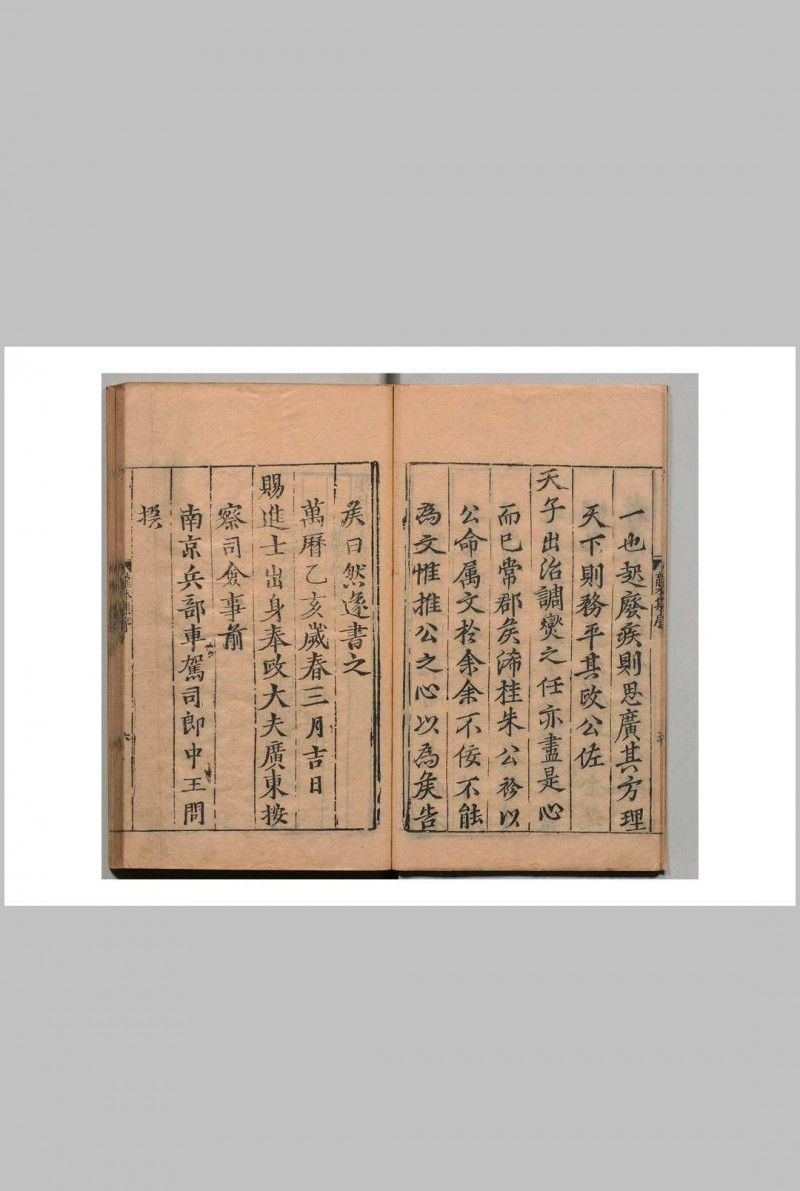 一也起廢疾則思廣其方理
天下則務平其政公佐
天子出治調燮之任亦盡是心
而已常郡矦沛桂朱公矜以
公命属文於余余不佞不能
為文惟推公之心以為矦告
矦曰然遂書之
萬曆乙亥歲春三月吉日
賜進士出身奉政大夫廣東按
察司僉事前
南京兵部車駕司郎中王問
撰